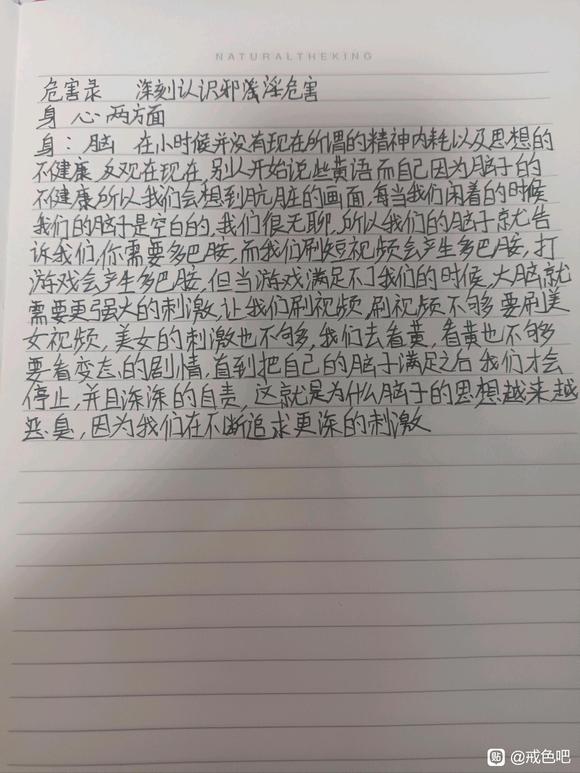 NATURALTHEKING
危害录 深刻认识邪淫危害
身 心 两方面
身：脑 在小时候并没有现在所谓的精神内耗以及思想的
不健康,反观在现在,别人开始说些黄语而自己因为脑子的
不健康所以我们会想到肮脏的画面,每当我们闲着的时候
我们的脑子是空白的,我们很无聊,所以我们的脑子就告
诉我们,你需要多巴胺,而我们刷短视频会产生多巴胺,打
游戏会产生多巴胺,但当游戏满足不了我们的时候,大脑就
需要更强大的刺激,让我们刷视频,刷视频不够要刷美
女视频,美女的刺激也不够,我们去看黄,看黄也不够
要看变态的剧情,直到把自己的脑子满足之后 我们才会
停止,并且深深的自责,这就是为什么脑子的思想越来越
恶臭,因为我们在不断追求更深的刺激
贴 @戒色吧